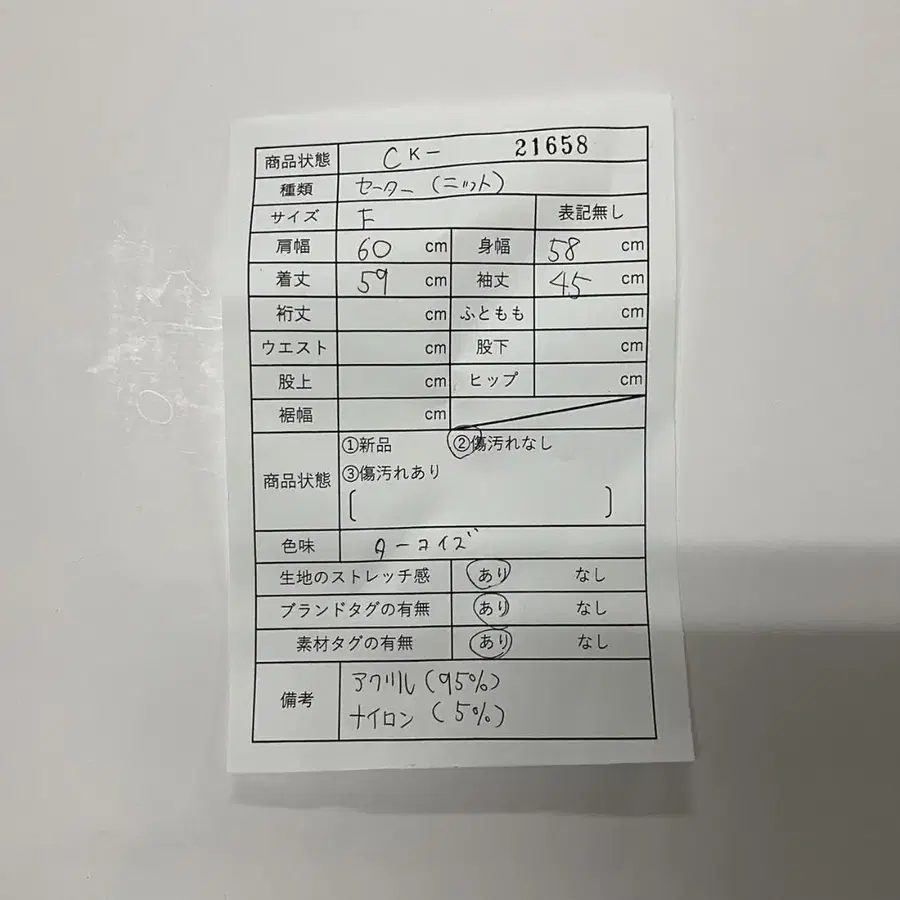 商品状態 CK- 21658
種類 セーター(ニット)
サイズ F 表記無し
肩幅 60 cm 身幅 58 cm
着丈 59 cm 袖丈 45 cm
裄丈 cm ふともも cm
ウエスト cm 股下 cm
股上 cm ヒップ cm
裾幅 cm
商品状態 ①新品 ②傷汚れなし
③傷汚れあり
[ ]
色味 ターコイズ
生地のストレッチ感 あり なし
ブランドタグの有無 あり なし
素材タグの有無 あり なし
備考 アクリル(95%)
ナイロン(5%)